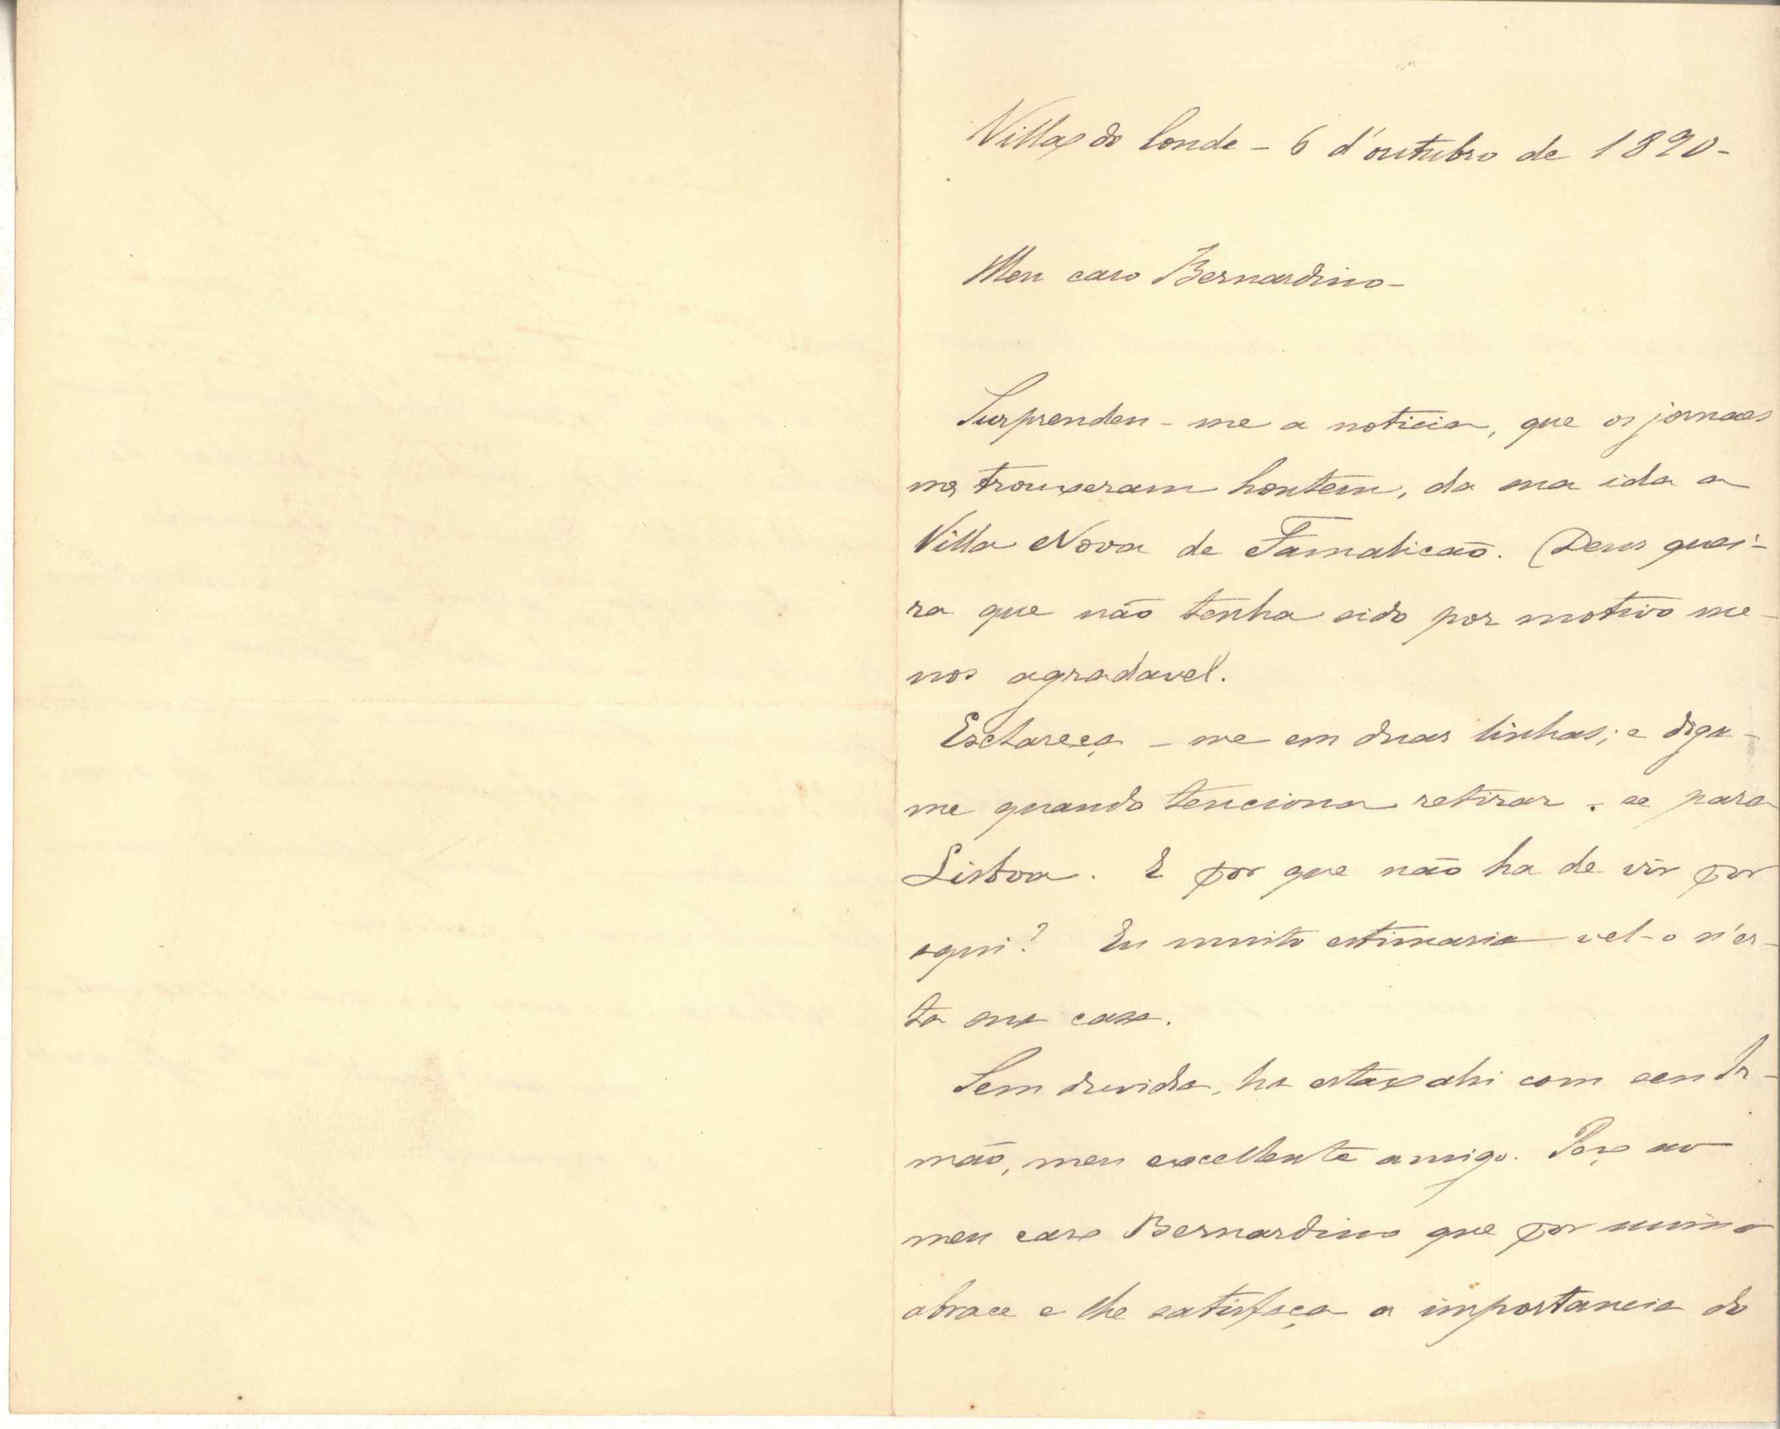 Villa do Conde - 6 d'outubro de 1890 -
Meu caro Bernardino -
Surprendeu-me a noticia, que os jornaes
me trouxeram hontem, da sua ida a
Villa Nova de Famalicão. Deus quei-
ra que não tenha sido por motivo me-
nos agradavel.
Esclareça-me em duas linhas; e diga-
me quando tenciona retirar-se para
Lisboa. E por que não ha de vir por
aqui? Eu muito estimaria vel-o n'es-
ta sua casa.
Sem duvida, ha estar ahi com seu Ir-
mão, meu excellente amigo. Peço ao
meu caro Bernardino que por mim o
abrace e lhe satisfaça a importancia do